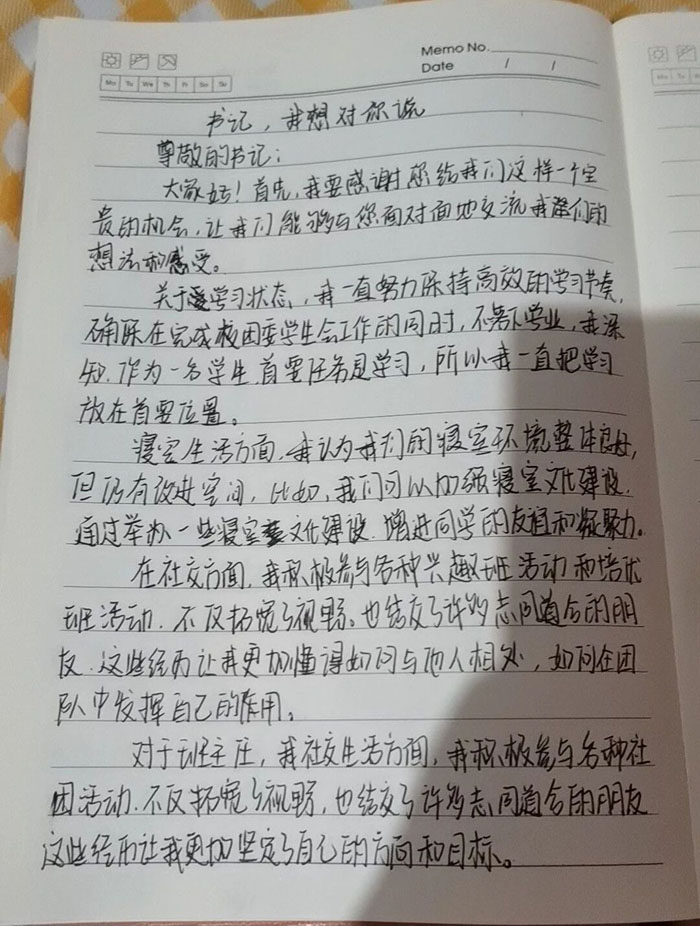 Memo No.
Date / /
Mo Tu We Th Fr Sa Su
书记，我想对你说
尊敬的书记：
大家好！首先，我要感谢您给我们这样一个宝
贵的机会，让我们能够与您面对面地交流我们的
想法和感受。
关于学习状态，我一直努力保持高效的学习节奏，
确保在完成校团委学生会工作的同时，不落下学业，我深
知，作为一名学生，首要任务是学习，所以我一直把学习
放在首要位置。
寝室生活方面，我认为我们的寝室环境整体良好，
但仍有改进空间，比如，我们可以加强寝室文化建设，
通过举办一些寝室文化建设，增进同学的友谊和凝聚力。
在社交方面，我积极参与各种兴趣班活动和培优
班活动，不仅拓宽了视野。也结交了许多志同道合的朋
友，这些经历让我更加懂得如何与他人相处，如何在团
队中发挥自己的作用。
对于班主任，我社交生活方面，我积极参与各种社
团活动，不仅拓宽了视野，也结交了许多志同道合的朋友
这些经历让我更加坚定了自己的方向和目标。